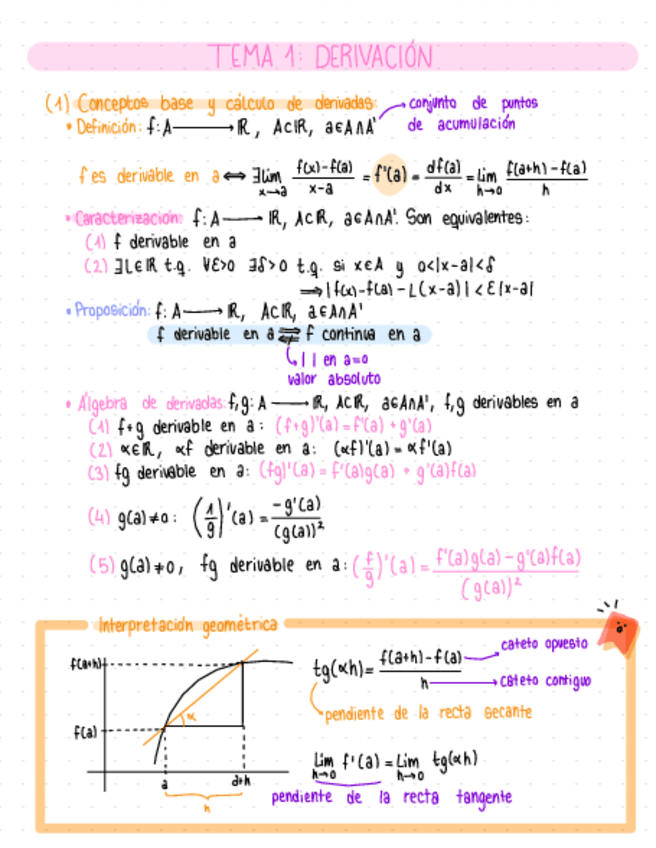 TEMA 1: DERIVACIÓN
(1) Conceptos base y cálculo de derivadas:
• Definición: f: A ⟶ ℝ, A⊂ℝ, a∈A∩A' → conjunto de puntos de acumulación
f es derivable en a ⟺ ∃lim_{x→a} (f(x)-f(a))/(x-a) = f'(a) = df(a)/dx = lim_{h→0} (f(a+h)-f(a))/h
• Caracterización: f: A ⟶ ℝ, A⊂ℝ, a∈A∩A'. Son equivalentes:
(1) f derivable en a
(2) ∃L∈ℝ t.q. ∀ε>0 ∃δ>0 t.q. si x∈A y 0<|x-a|<δ
⟹ |f(x)-f(a)-L(x-a)| < ε|x-a|
• Proposición: f: A ⟶ ℝ, A⊂ℝ, a∈A∩A'
f derivable en a ⇏⟸ f continua en a
| | en a=0
valor absoluto
• Álgebra de derivadas: f,g: A ⟶ ℝ, A⊂ℝ, a∈A∩A', f,g derivables en a
(1) f+g derivable en a: (f+g)'(a) = f'(a) + g'(a)
(2) α∈ℝ, αf derivable en a: (αf)'(a) = αf'(a)
(3) fg derivable en a: (fg)'(a) = f'(a)g(a) + g'(a)f(a)
(4) g(a)≠0: (1/g)'(a) = -g'(a)/(g(a))²
(5) g(a)≠0, fg derivable en a: (f/g)'(a) = (f'(a)g(a)-g'(a)f(a))/(g(a))²
Interpretación geométrica
f(a+h)
f(a)
α
a
a+h
h
tg(αh) = (f(a+h)-f(a))/h
cateto opuesto
cateto contiguo
pendiente de la recta secante
lim_{h→0} f'(a) = lim_{h→0} tg(αh)
pendiente de la recta tangente